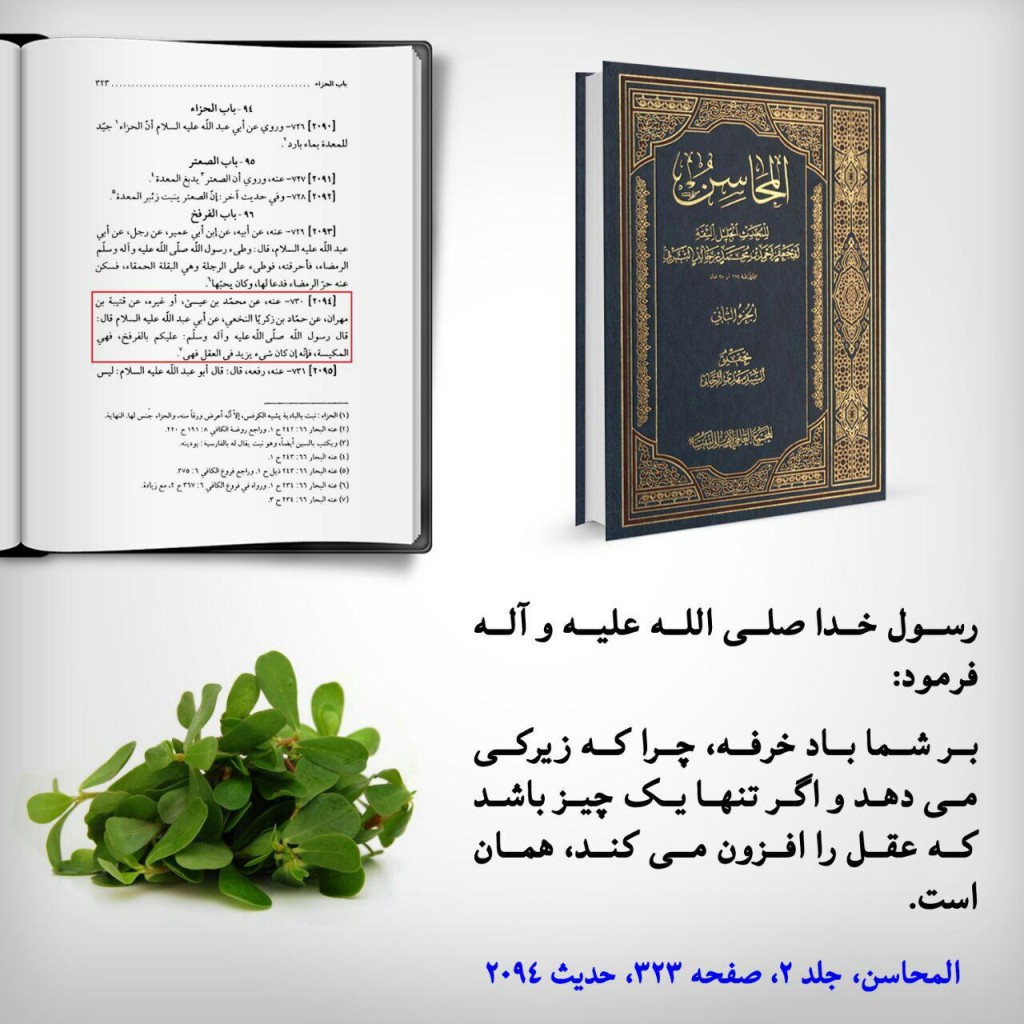 باب الحزاء ................................................ ٣٢٣
٩٤ - باب الحزاء
[٢٠٩٠] ٧٢٦- وروي عن أبي عبد اللّه عليه السلام أنّ الحزاء١ جيّد
للمعدة بماء بارد٢.
٩٥ - باب الصعتر
[٢٠٩١] ٧٢٧- عنه، وروي أن الصعتر٣ يدبغ المعدة٤.
[٢٠٩٢] ٧٢٨- وفي حديث آخر: إنّ الصعتر ينبت زئبر المعدة٥.
٩٦ - باب الفرفخ
[٢٠٩٣] ٧٢٩- عنه، عن أبيه، عن إبن أبي عمير، عن رجل، عن أبي
عبد اللّه عليه السلام، قال: وطىء رسول اللّه صلّى اللّه عليه وآله وسلّم
الرمضاء، فأحرقته، فوطىء على الرجلة وهي البقلة الحمقاء، فسكن
عنه حرّ الرمضاء فدعا لها، وكان يحبّها٦.
[٢٠٩٤] ٧٣٠- عنه، عن محمّد بن عيسىٰ، أو غيره، عن قتيبة بن
مهران، عن حمّاد بن زكريّا النخعي، عن أبي عبد اللّه عليه السلام قال:
قال رسول اللّه صلّى اللّه عليه وآله وسلّم: عليكم بالفرفخ، فهي
المكيسة، فإنّه إن كان شيء يزيد في العقل فهي٧.
[٢٠٩٥] ٧٣١- عنه، رفعه، قال: قال أبو عبد اللّه عليه السلام: ليس
(١) الحزاء: نبت بالبادية يشبه الكرفس، إلاّ أنّه أعرض ورقاً منه، والحزاء، جنس لها. النهاية.
(٢) عنه البحار ٦٦: ٢٤٢ ح ١. وراجع روضة الكافي ٨: ١٩١ ح ٢٢٠.
(٣) ويكتب بالسين أيضاً، وهو نبت يقال له بالفارسية: پودينه.
(٤) عنه البحار ٦٦: ٢٤٣ ح ١.
(٥) عنه البحار ٦٦: ٢٤٣ ذيل ح ١. وراجع فروع الكافي ٦: ٣٧٥.
(٦) عنه البحار ٦٦: ٢٣٤ ح ١. ورواه في فروع الكافي ٦: ٣٦٧ ح ٢، مع زيادة.
(٧) عنه البحار ٦٦: ٢٣٤ ح ٣.
المحاسن
للمحدث الجليل الثقة
أبي جعفر أحمد بن محمد بن خالد البرقي
الجزء الثاني
تحقيق
السيد مهدي الرجائي
المجمع العالمي لأهل البيت
رسول خدا صلی الله علیه و آله
فرمود:
بر شما باد خرفه، چرا که زیرکی
می دهد و اگر تنها یک چیز باشد
که عقل را افزون می کند، همان
است.
المحاسن، جلد ٢، صفحه ٣٢٣، حدیث ٢٠٩٤